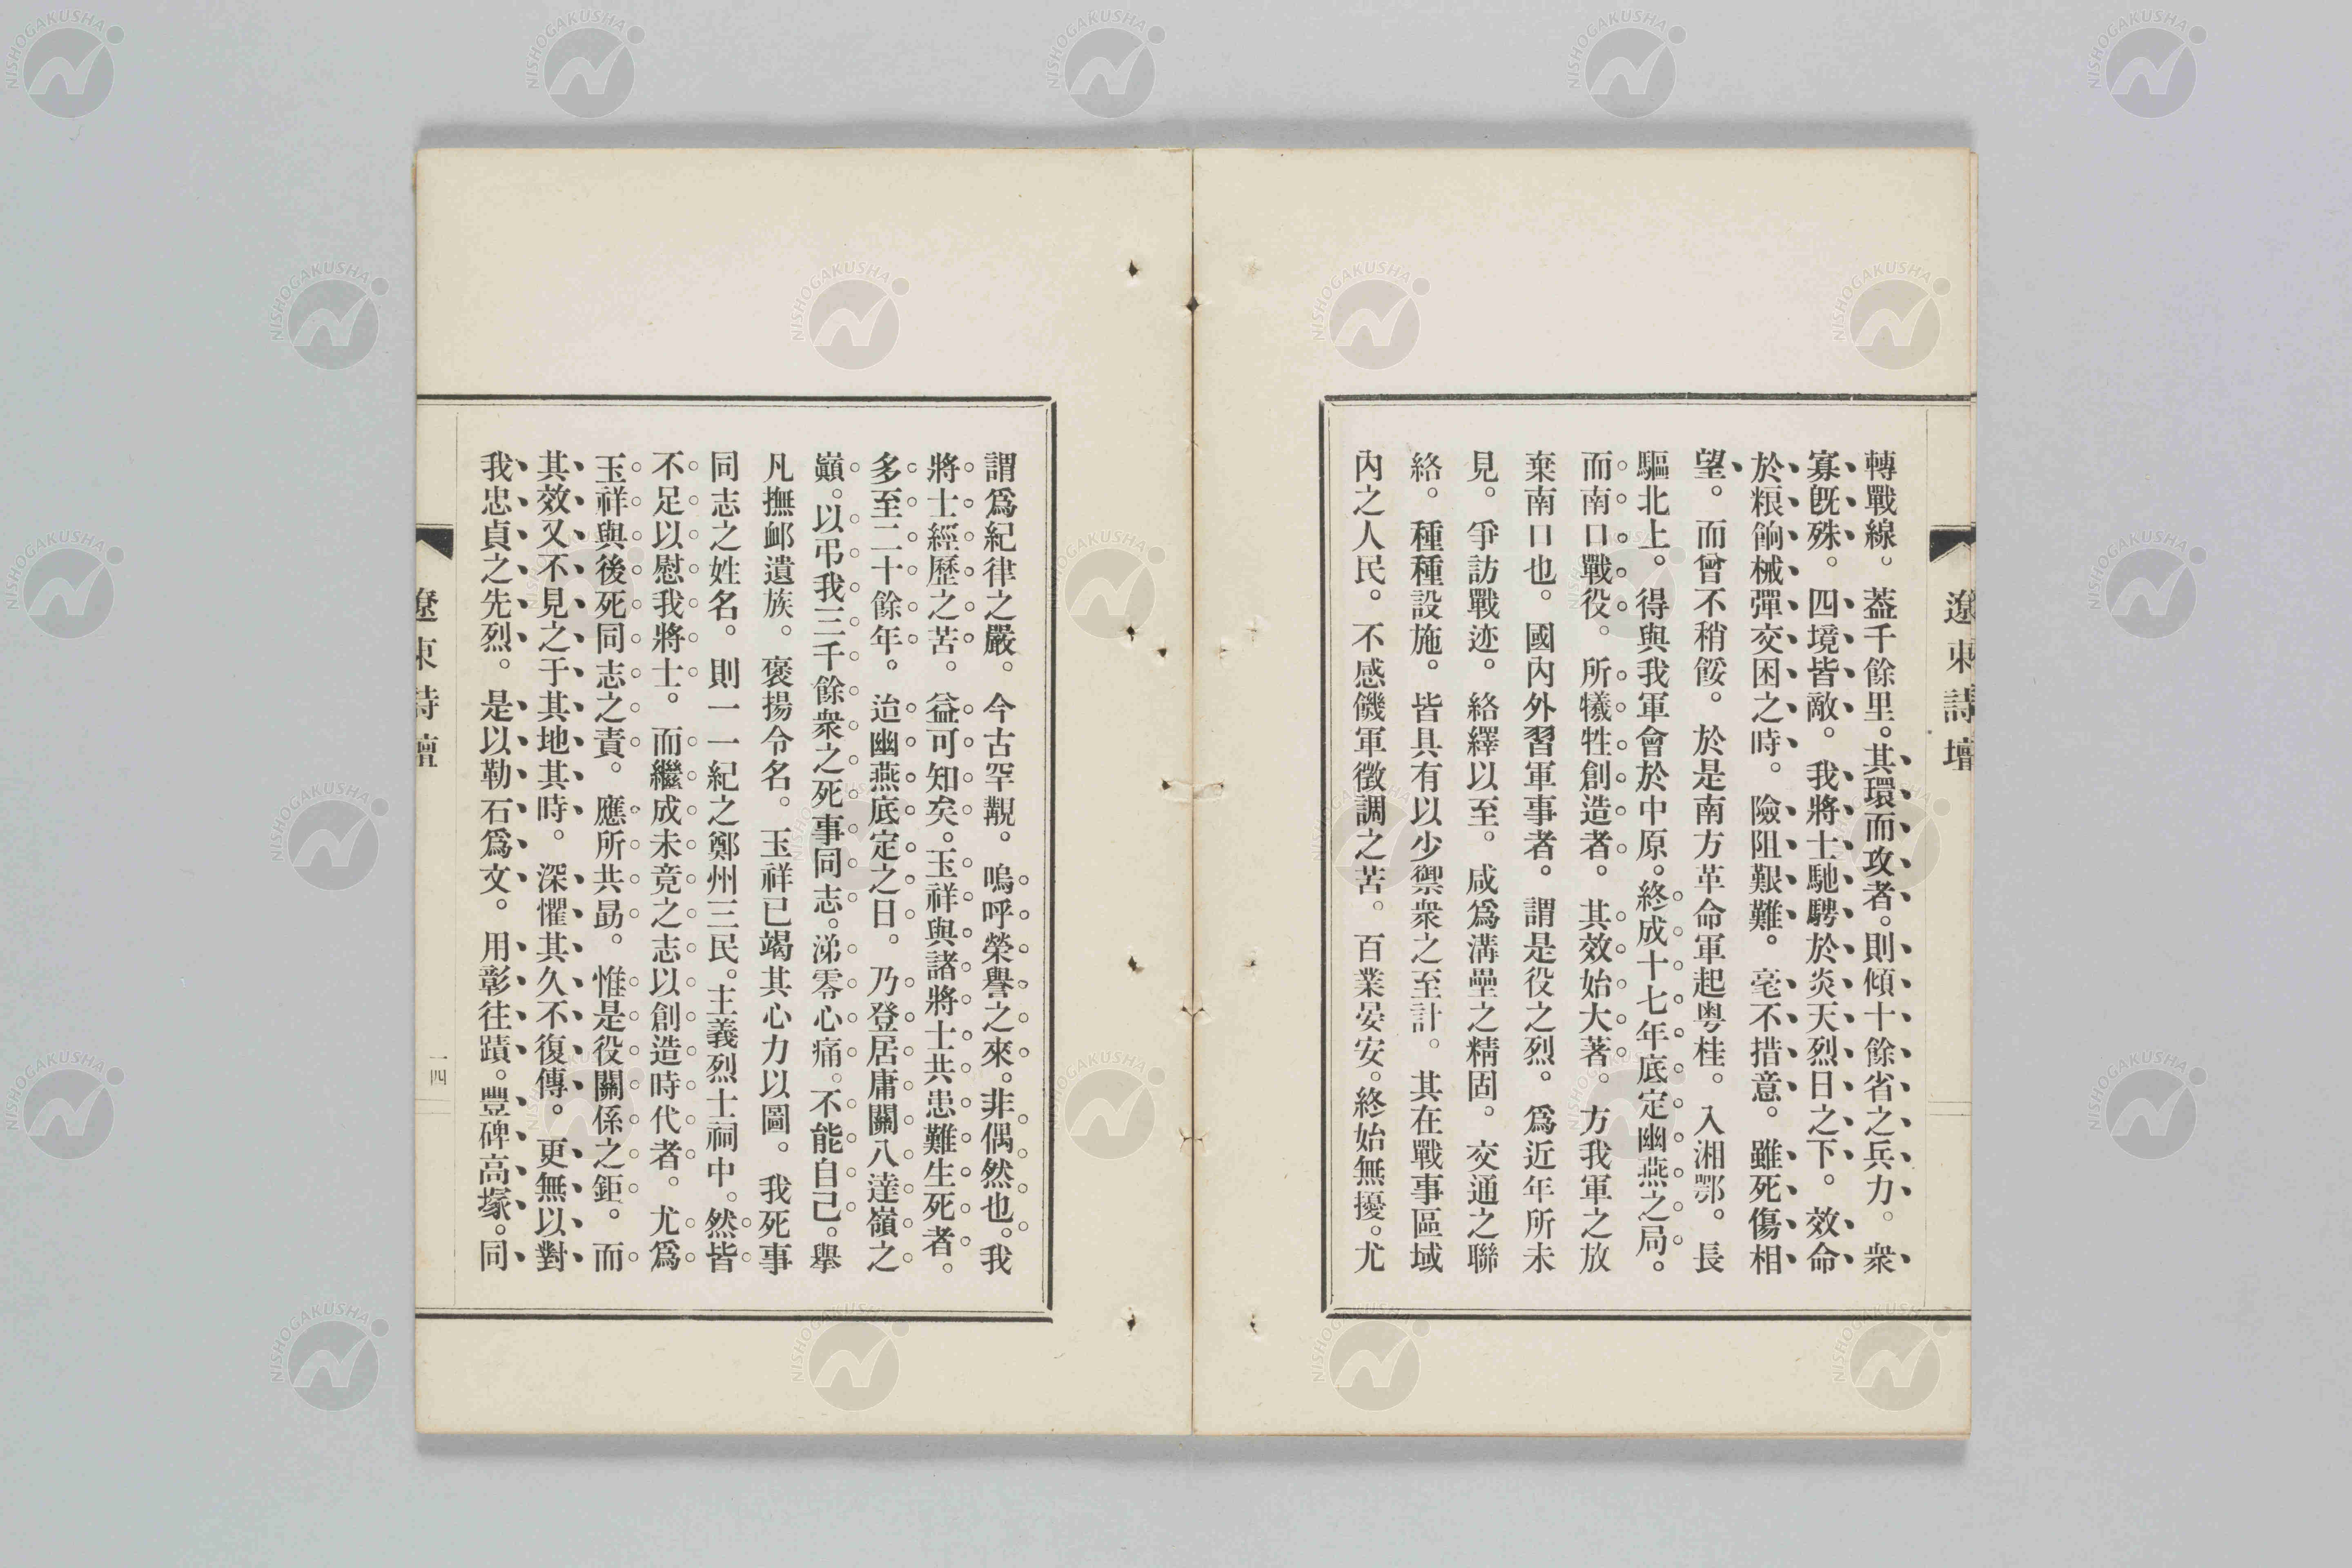 遼東詩壇
轉戰線。葢千餘里。其環而攻者。則傾十餘省之兵力。衆
寡旣殊。四境皆敵。我將士馳騁於炎天烈日之下。效命
於粮餉械彈交困之時。險阻艱難。毫不措意。雖死傷相
望。而曾不稍餒。於是南方革命軍起粤桂。入湘鄂。長
驅北上。得與我軍會於中原。終成十七年底定幽燕之局。
而南口戰役。所犧牲創造者。其效始大著。方我軍之放
棄南口也。國內外習軍事者。謂是役之烈。爲近年所未
見。爭訪戰迹。絡繹以至。咸爲溝壘之精固。交通之聯
絡。種種設施。皆具有以少禦衆之至計。其在戰事區域
內之人民。不感饑軍徵調之苦。百業晏安。終始無擾。尤
謂爲紀律之嚴。今古罕覯。嗚呼榮譽之來。非偶然也。我
將士經歷之苦。益可知矣。玉祥與諸將士共患難生死者。
多至二十餘年。迨幽燕底定之日。乃登居庸關八達嶺之
巔。以弔我三千餘衆之死事同志。涕零心痛。不能自己。擧
凡撫卹遺族。褒揚令名。玉祥已竭其心力以圖。我死事
同志之姓名。則一一紀之鄭州三民。主義烈士祠中。然皆
不足以慰我將士。而繼成未竟之志以創造時代者。尤爲
玉祥與後死同志之責。應所共勗。惟是役關係之鉅。而
其效又不見之于其地其時。深懼其久不復傳。更無以對
我忠貞之先烈。是以勒石爲文。用彰往蹟。豐碑高塚。同
遼東詩壇
一四
NISHOGAKUSHA